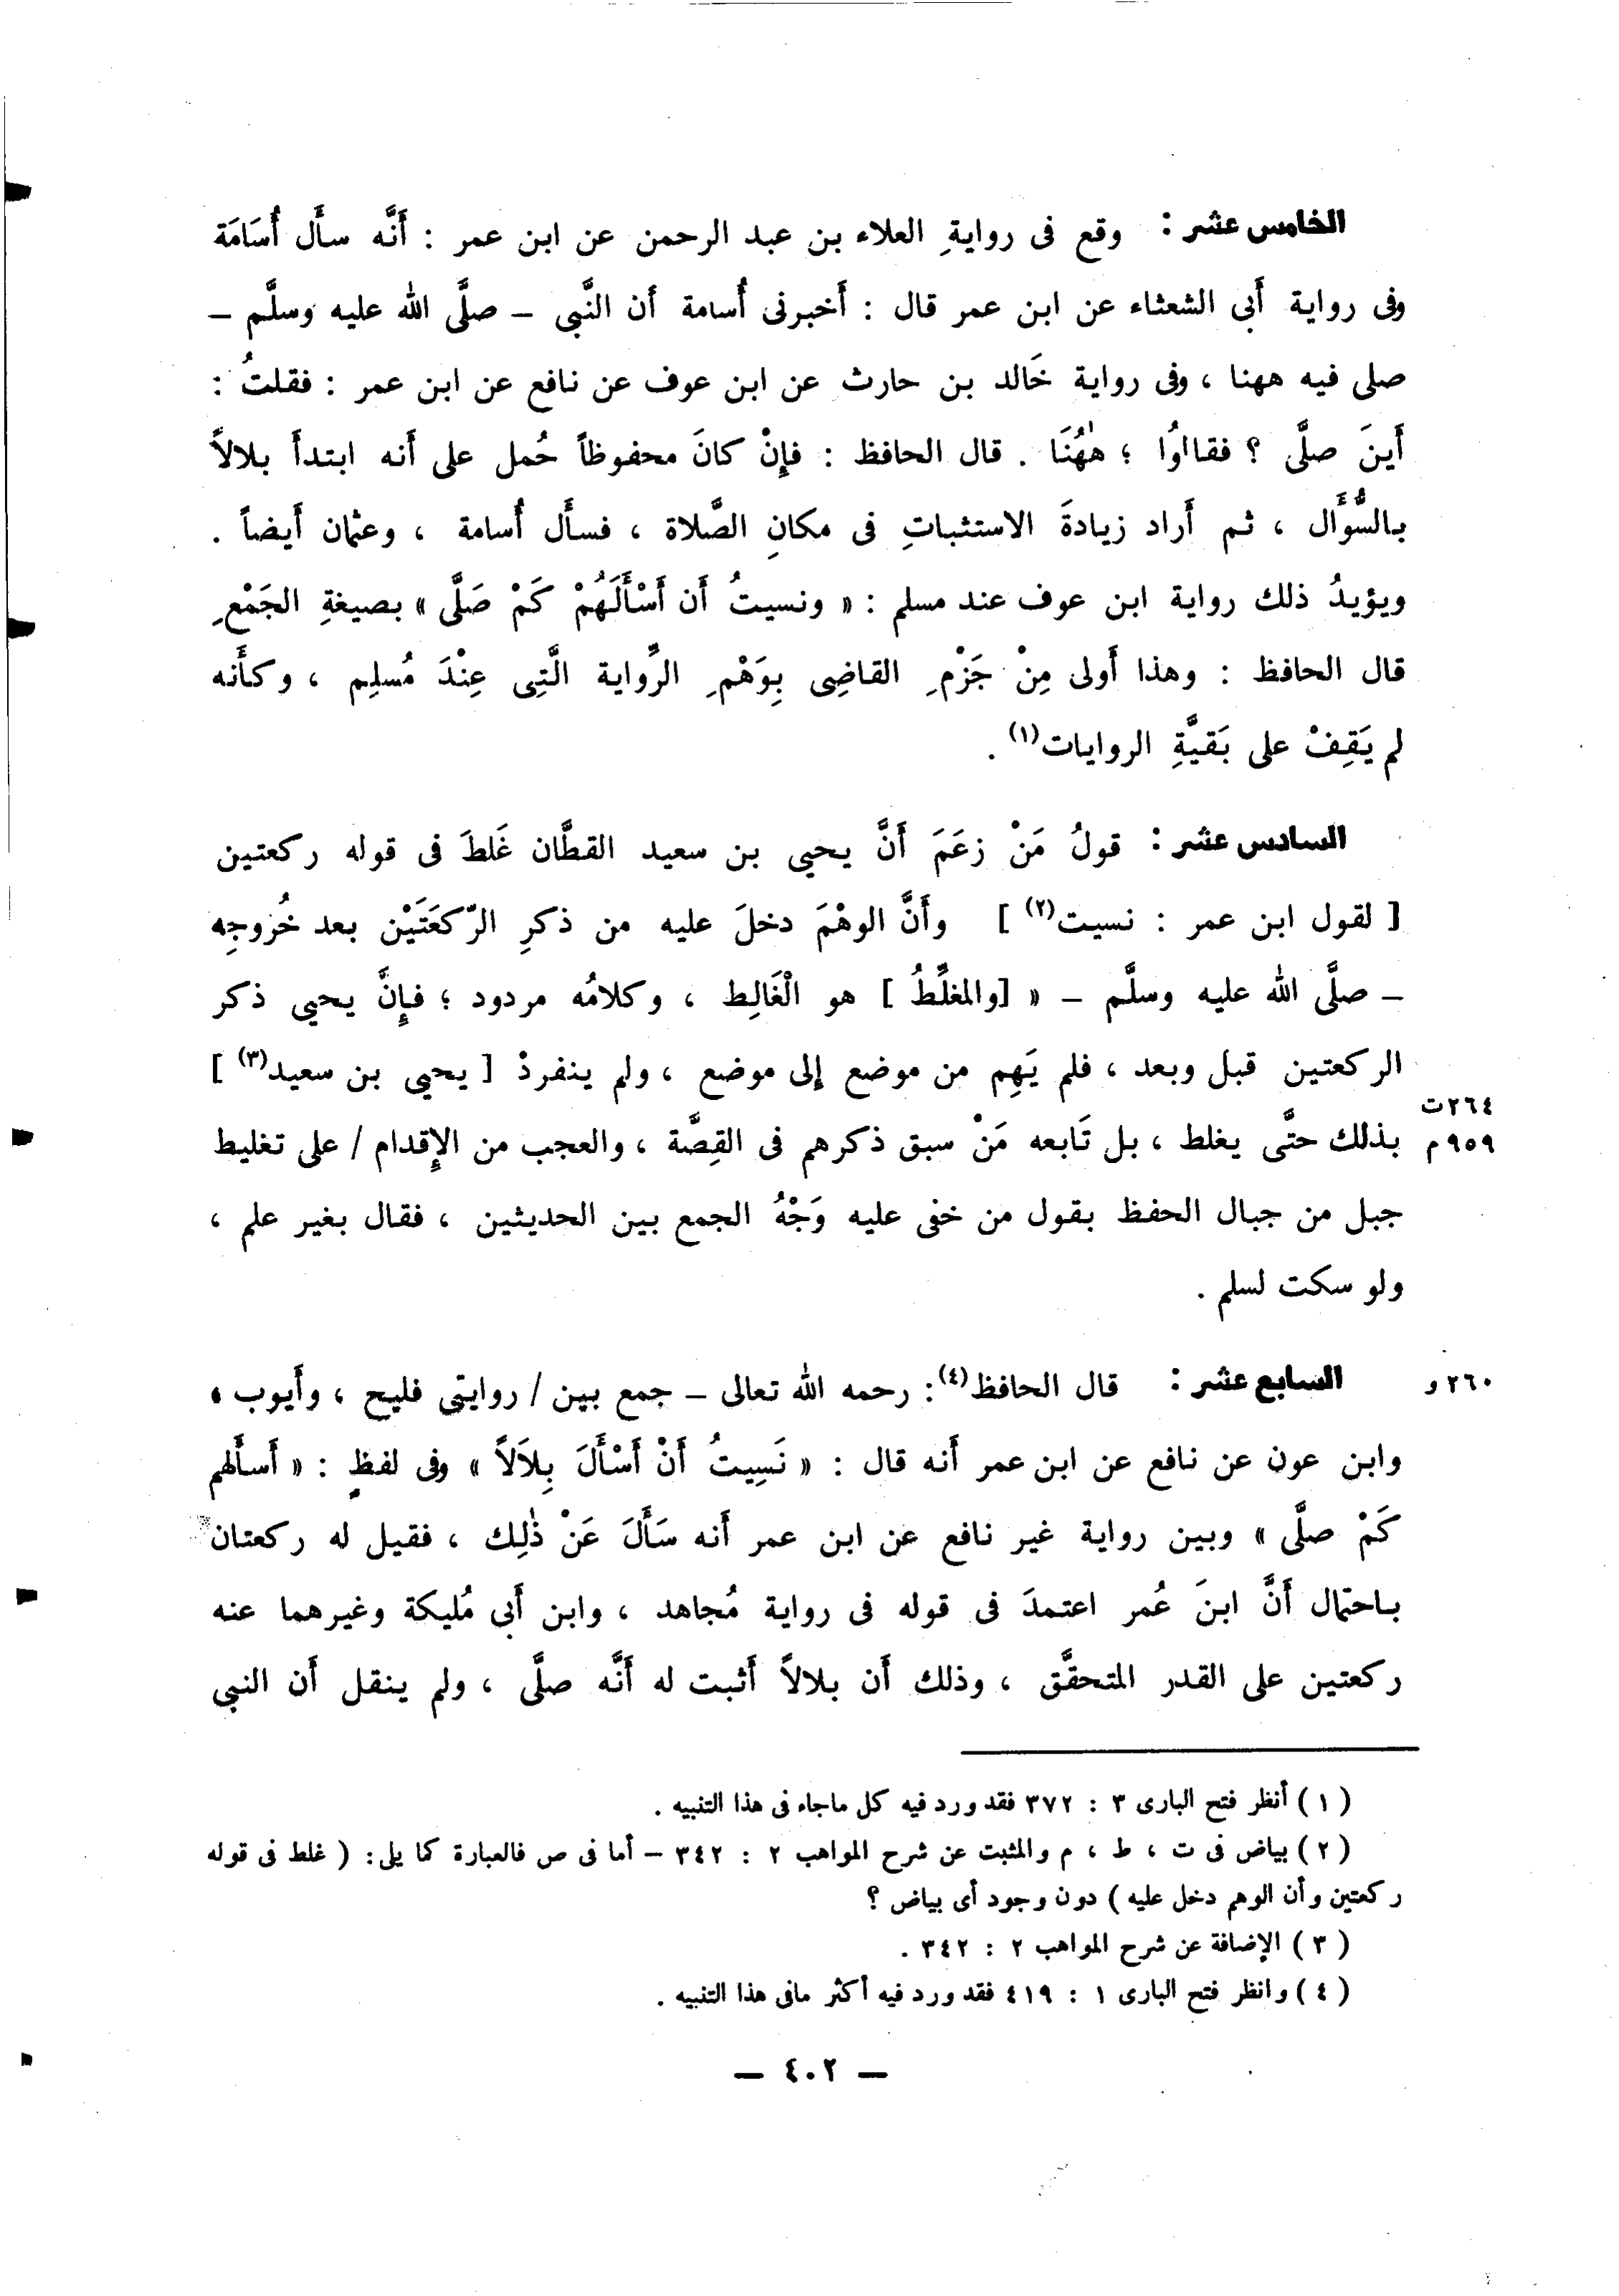 الخامس عشر : وقع فى روايةِ العلاء بن عبد الرحمن عن ابن عمر : أَنَّه سأَل أُسَامَة
وفى رواية أَبى الشعثاء عن ابن عمر قال : أَخبرنى أُسامة أَن النَّبى – صلَّى الله عليه وسلَّم –
صلى فيه ههنا ، وفى رواية خَالد بن حارث عن ابن عوف عن نافع عن ابن عمر : فقلتُ :
أَينَ صلَّى ؟ فقااوُا ؛ هٰهُنَا . قال الحافظ : فإِنْ كانَ محفوظاً حُمل على أَنه ابتدأَ بلالاً
بالسُّؤَال ، ثم أَراد زيادةَ الاستثباتِ فى مكانِ الصَّلاة ، فسأَل أُسامة ، وعثمان أَيضاً .
ويؤيدُ ذلك رواية ابن عوف عند مسلم : « ونسيتُ أَن أَسْأَلَهُمْ كَمْ صَلَّى » بصيغةِ الجَمْعِ
قال الحافظ : وهذا أَولى مِنْ جَزْمِ القاضِى بِوَهْمِ الرِّواية الَّتِى عِنْدَ مُسلِم ، وكأَنه
لم يَقِفْ على بَقيَّةِ الروايات(١) .
السادس عشر : قولُ مَنْ زعَمَ أَنَّ يحيى بن سعيد القطَّان غَلطَ فى قوله ركعتين
[ لقول ابن عمر : نسيت(٢) ] وأَنَّ الوهْمَ دخلَ عليه من ذكرِ الرّكعَتَيْن بعد خُروجِه
– صلَّى الله عليه وسلَّم – « [والمغلِّطُ ] هو الْغَالِط ، وكلامُه مردود ؛ فإِنَّ يحيى ذكر
الركعتين قبل وبعد ، فلم يَهِم من موضع إلى موضع ، ولم ينفردْ [ يحيى بن سعيد(٣) ]
٢٦٤ت
٩٥٩م بذلك حتَّى يغلط ، بل تَابعه مَنْ سبق ذكرهم فى القِصَّة ، والعجب من الإِقدام / على تغليط
جبل من جبال الحفظ بقول من خفى عليه وَجْهُ الجمع بين الحديثين ، فقال بغير علم ،
ولو سكت لسلم .
٢٦٠و السابع عشر : قال الحافظ(٤): رحمه الله تعالى – جمع بين / روايتى فليح ، وأَيوب ،
وابن عون عن نافع عن ابن عمر أَنه قال : « نَسِيتُ أَنْ أَسْأَلَ بِلاَلاً » وفى لفظٍ : « أَسأَلهم
كَمْ صلَّى » وبين رواية غير نافع عن ابن عمر أَنه سَأَلَ عَنْ ذٰلِك ، فقيل له ركعتان
باحتمال أَنَّ ابنَ عُمر اعتمدَ فى قوله فى رواية مُجاهد ، وابن أَبى مُليكة وغيرهما عنه
ركعتين على القدر المتحقَّق ، وذلك أَن بلالاً أَثبت له أَنَّه صلَّى ، ولم ينقل أَن النبى
( ١ ) أنظر فتح البارى ٣ : ٣٧٢ فقد ورد فيه كل ماجاء فى هذا التنبيه .
( ٢ ) بياض فى ت ، ط ، م والمثبت عن شرح المواهب ٢ : ٣٤٢ – أما فى ص فالعبارة كما يلى: ( غلط فى قوله
ركعتين وأن الوهم دخل عليه ) دون وجود أى بياض ؟
( ٣ ) الإضافة عن شرح المواهب ٢ : ٣٤٢ .
( ٤ ) وانظر فتح البارى ١ : ٤١٩ فقد ورد فيه أكثر مافى هذا التنبيه .
– ٤٠٢ –